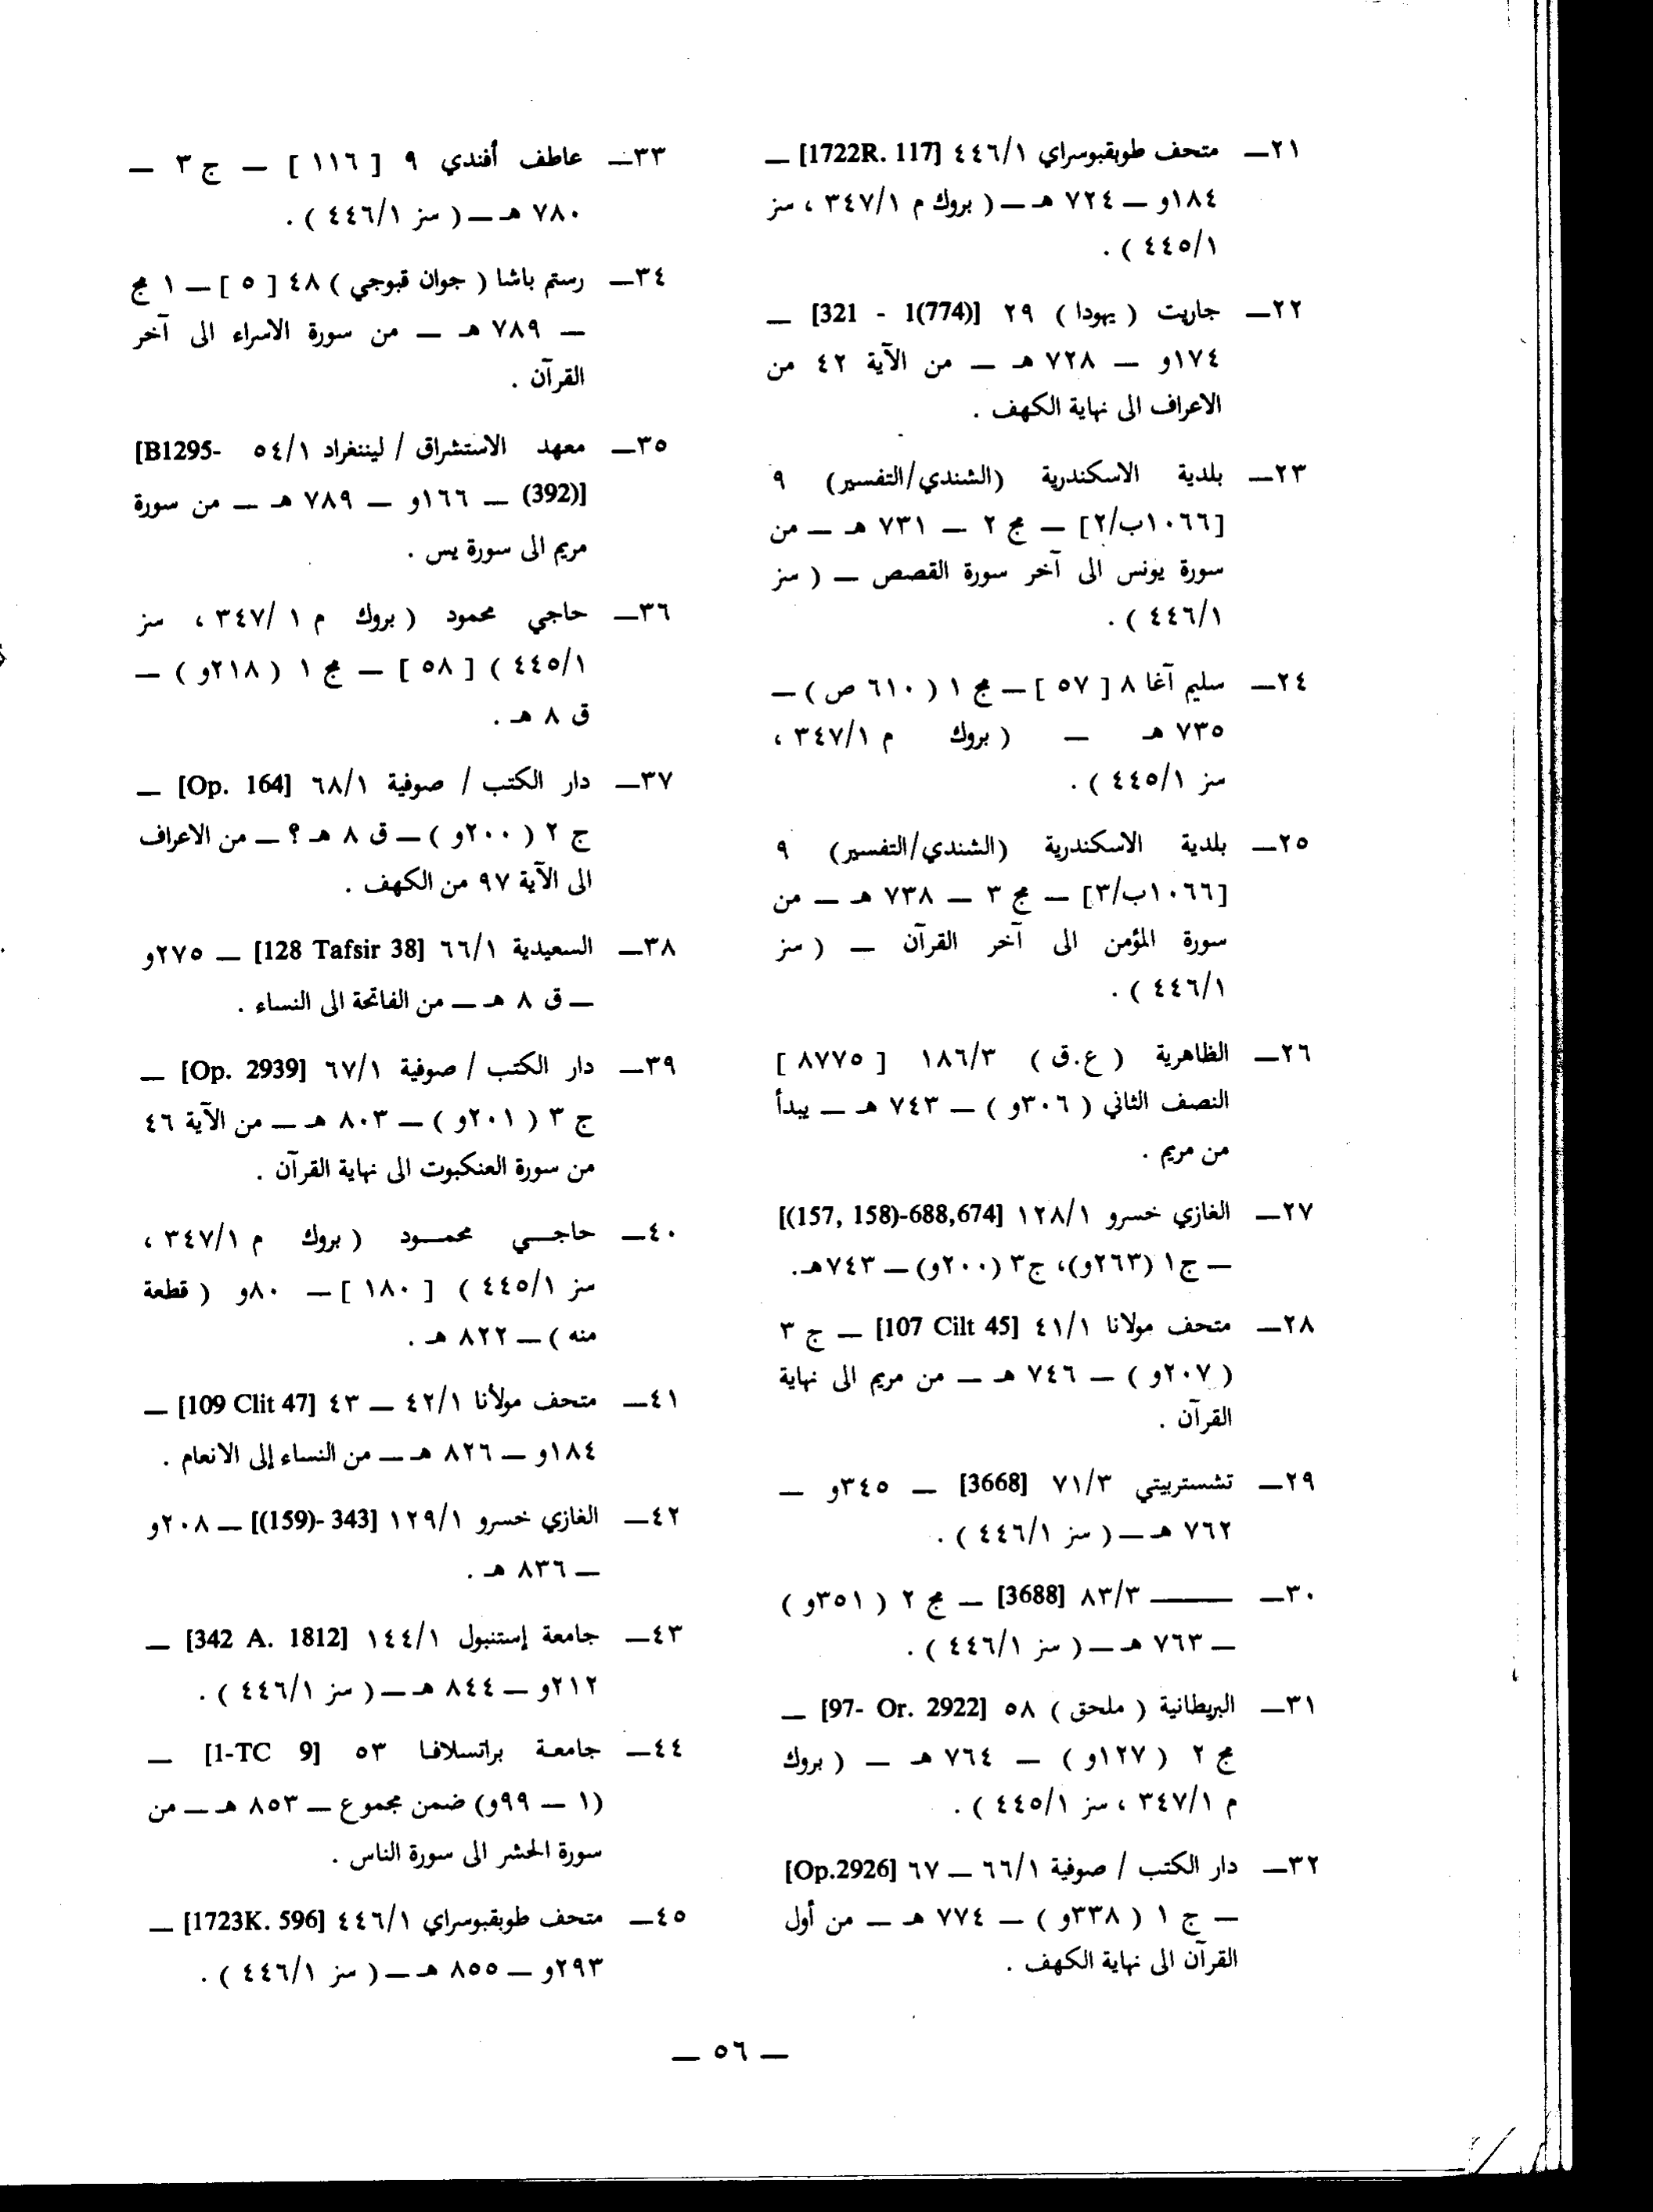 ٢١ــ متحف طوبقبوسراي ٤٤٦/١ [1722R. 117] ــ
١٨٤و ــ ٧٢٤ هـ ــ ( بروك م ٣٤٧/١ ، سز
٤٤٥/١ ) .
٢٢ــ جاريت ( يهودا ) ٢٩ [321 - 1(774)] ــ
١٧٤و ــ ٧٢٨ هـ ــ من الآية ٤٢ من
الاعراف الى نهاية الكهف .
٢٣ــ بلدية الاسكندرية (الشندي/التفسير) ٩
[١٠٦٦ب/٢] ــ مج ٢ ــ ٧٣١ هـ ــ من
سورة يونس الى آخر سورة القصص ــ ( سز
٤٤٦/١ ) .
٢٤ــ سليم آغا ٨ [ ٥٧ ] ــ مج ١ ( ٦١٠ ص ) ــ
٧٣٥ هـ ــ ( بروك م ٣٤٧/١ ،
سز ٤٤٥/١ ) .
٢٥ــ بلدية الاسكندرية (الشندي/التفسير) ٩
[١٠٦٦ب/٣] ــ مج ٣ ــ ٧٣٨ هـ ــ من
سورة المؤمن الى آخر القرآن ــ ( سز
٤٤٦/١ ) .
٢٦ــ الظاهرية ( ع.ق ) ١٨٦/٣ [ ٨٧٧٥ ]
النصف الثاني ( ٣٠٦و ) ــ ٧٤٣ هـ ــ يبدأ
من مريم .
٢٧ــ الغازي خسرو ١٢٨/١ [(157, 158)-688,674]
ــ ج١ (٢٦٣و)، ج٣ (٢٠٠و) ــ ٧٤٣هـ.
٢٨ــ متحف مولانا ٤١/١ [107 Cilt 45] ــ ج ٣
( ٢٠٧و ) ــ ٧٤٦ هـ ــ من مريم الى نهاية
القرآن .
٢٩ــ تشستربيتي ٧١/٣ [3668] ــ ٣٤٥و ــ
٧٦٢ هـ ــ ( سز ٤٤٦/١ ) .
٣٠ــ ـــــــ ٨٣/٣ [3688] ــ مج ٢ ( ٣٥١و )
ــ ٧٦٣ هـ ــ ( سز ٤٤٦/١ ) .
٣١ــ البريطانية ( ملحق ) ٥٨ [97- Or. 2922] ــ
مج ٢ ( ١٢٧و ) ــ ٧٦٤ هـ ــ ( بروك
م ٣٤٧/١ ، سز ٤٤٥/١ ) .
٣٢ــ دار الكتب / صوفية ٦٦/١ ــ ٦٧ [Op.2926]
ــ ج ١ ( ٣٣٨و ) ــ ٧٧٤ هـ ــ من أول
القرآن الى نهاية الكهف .
٣٣ــ عاطف أفندي ٩ [ ١١٦ ] ــ ج ٣ ــ
٧٨٠ هـ ــ ( سز ٤٤٦/١ ) .
٣٤ــ رستم باشا ( جوان قبوجي ) ٤٨ [ ٥ ] ــ ١ مج
ــ ٧٨٩ هـ ــ من سورة الاسراء الى آخر
القرآن .
٣٥ــ معهد الاستشراق / ليننغراد ٥٤/١ [B1295-
(392)] ــ ١٦٦و ــ ٧٨٩ هـ ــ من سورة
مريم الى سورة يس .
٣٦ــ حاجي محمود ( بروك م ١ /٣٤٧ ، سز
٤٤٥/١ ) [ ٥٨ ] ــ مج ١ ( ٢١٨و ) ــ
ق ٨ هـ .
٣٧ــ دار الكتب / صوفية ٦٨/١ [Op. 164] ــ
ج ٢ ( ٢٠٠و ) ــ ق ٨ هـ ؟ ــ من الاعراف
الى الآية ٩٧ من الكهف .
٣٨ــ السعيدية ٦٦/١ [128 Tafsir 38] ــ ٢٧٥و
ــ ق ٨ هـ ــ من الفاتحة الى النساء .
٣٩ــ دار الكتب / صوفية ٦٧/١ [Op. 2939] ــ
ج ٣ ( ٢٠١و ) ــ ٨٠٣ هـ ــ من الآية ٤٦
من سورة العنكبوت الى نهاية القرآن .
٤٠ــ حاجــي محمــود ( بروك م ٣٤٧/١ ،
سز ٤٤٥/١ ) [ ١٨٠ ] ــ ٨٠و ( قطعة
منه ) ــ ٨٢٢ هـ .
٤١ــ متحف مولانا ٤٢/١ ــ ٤٣ [109 Clit 47] ــ
١٨٤و ــ ٨٢٦ هـ ــ من النساء إلى الانعام .
٤٢ــ الغازي خسرو ١٢٩/١ [(159)- 343] ــ ٢٠٨و
ــ ٨٣٦ هـ .
٤٣ــ جامعة إستنبول ١٤٤/١ [342 A. 1812] ــ
٢١٢و ــ ٨٤٤ هـ ــ ( سز ٤٤٦/١ ) .
٤٤ــ جامعة براتسلافا ٥٣ [1-TC 9] ــ
(١ ــ ٩٩و) ضمن مجموع ــ ٨٥٣ هـ ــ من
سورة الحشر الى سورة الناس .
٤٥ــ متحف طوبقبوسراي ٤٤٦/١ [1723K. 596] ــ
٢٩٣و ــ ٨٥٥ هـ ــ ( سز ٤٤٦/١ ) .
ــ ٥٦ ــ